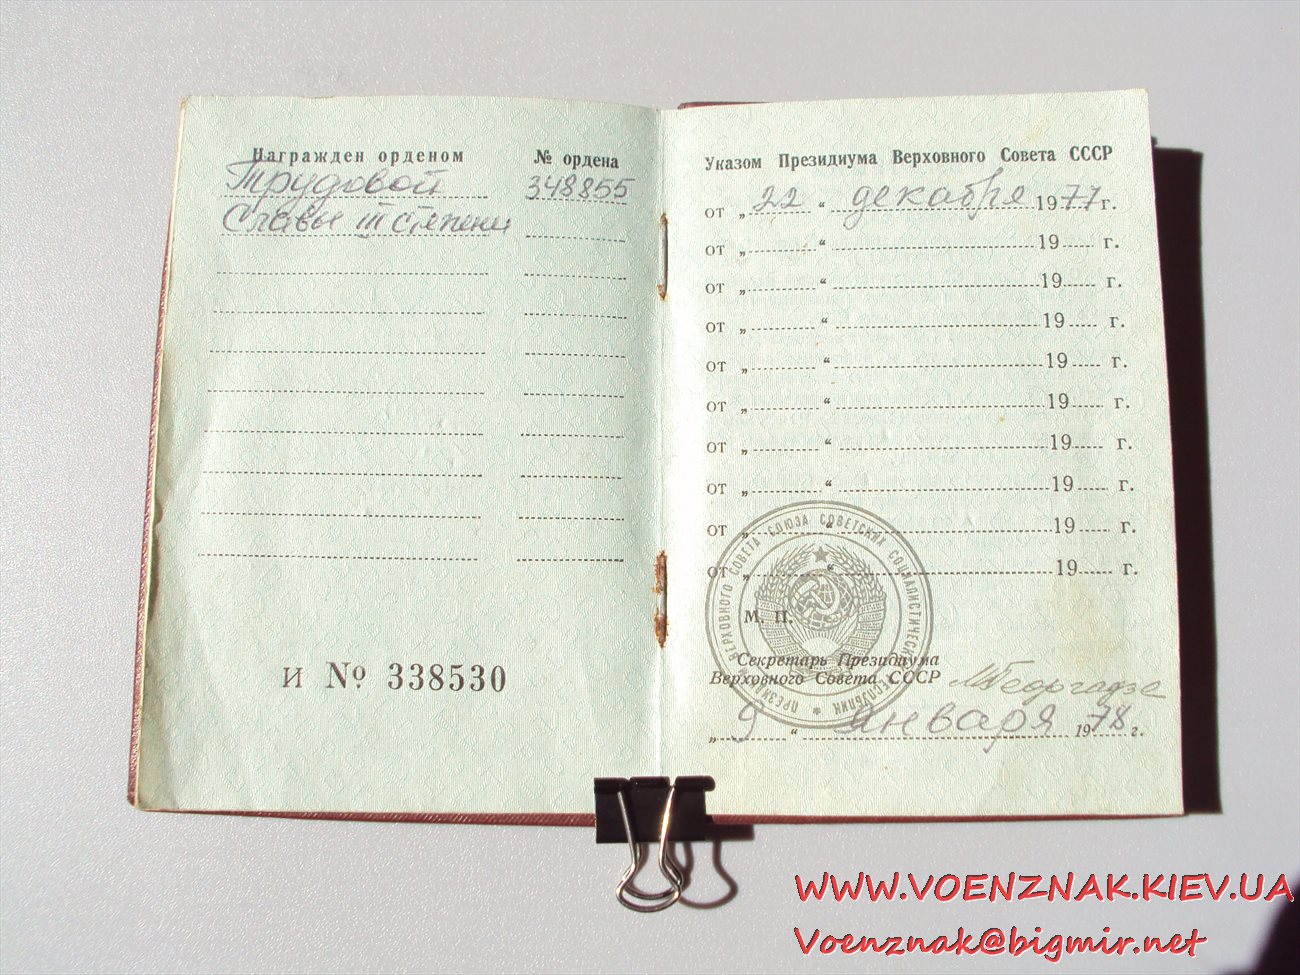 Награжден орденом
№ ордена
Трудовой
348855
Славы III степени
И № 338530
Указом Президиума Верховного Совета СССР
от „ 22 “ декабря 1977 г.
от „ “ 19 г.
от „ “ 19 г.
от „ “ 19 г.
от „ “ 19 г.
от „ “ 19 г.
от „ “ 19 г.
от „ “ 19 г.
от „ “ 19 г.
от „ “ 19 г.
ПРЕЗИДИУМ ВЕРХОВНОГО СОВЕТА СОЮЗА СОВЕТСКИХ СОЦИАЛИСТИЧЕСКИХ РЕСПУБЛИК *
М. П.
Секретарь Президиума
Верховного Совета СССР
МГеоргадзе
„ 9 “ января 1978 г.
WWW.VOENZNAK.KIEV.UA
Voenznak@bigmir.net